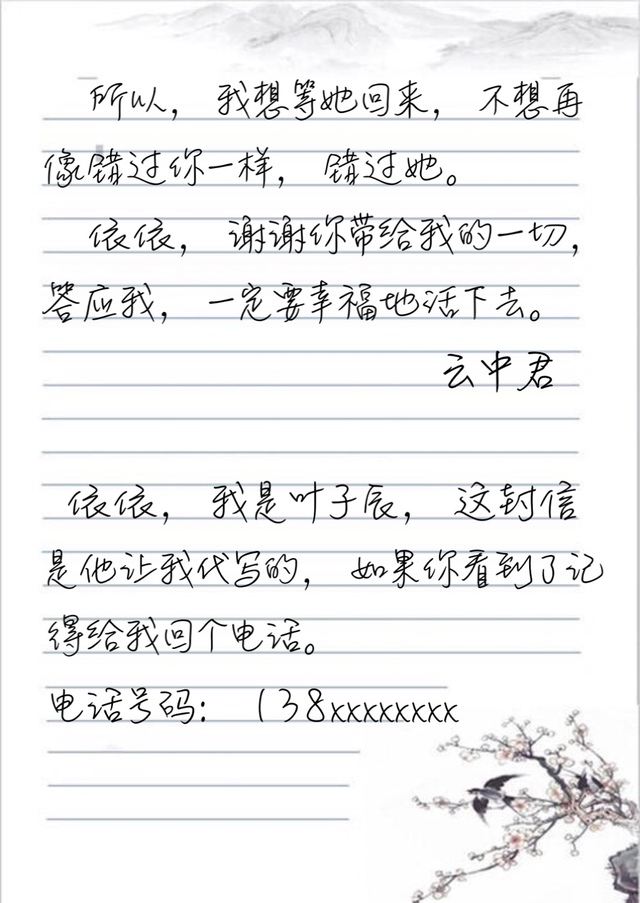 所以，我想等她回来，不想再
像错过你一样，错过她。
依依，谢谢你带给我的一切，
答应我，一定要幸福地活下去。
云中君
依依，我是叶子辰，这封信
是他让我代写的，如果你看到了记
得给我回个电话。
电话号码：138xxxxxxxx